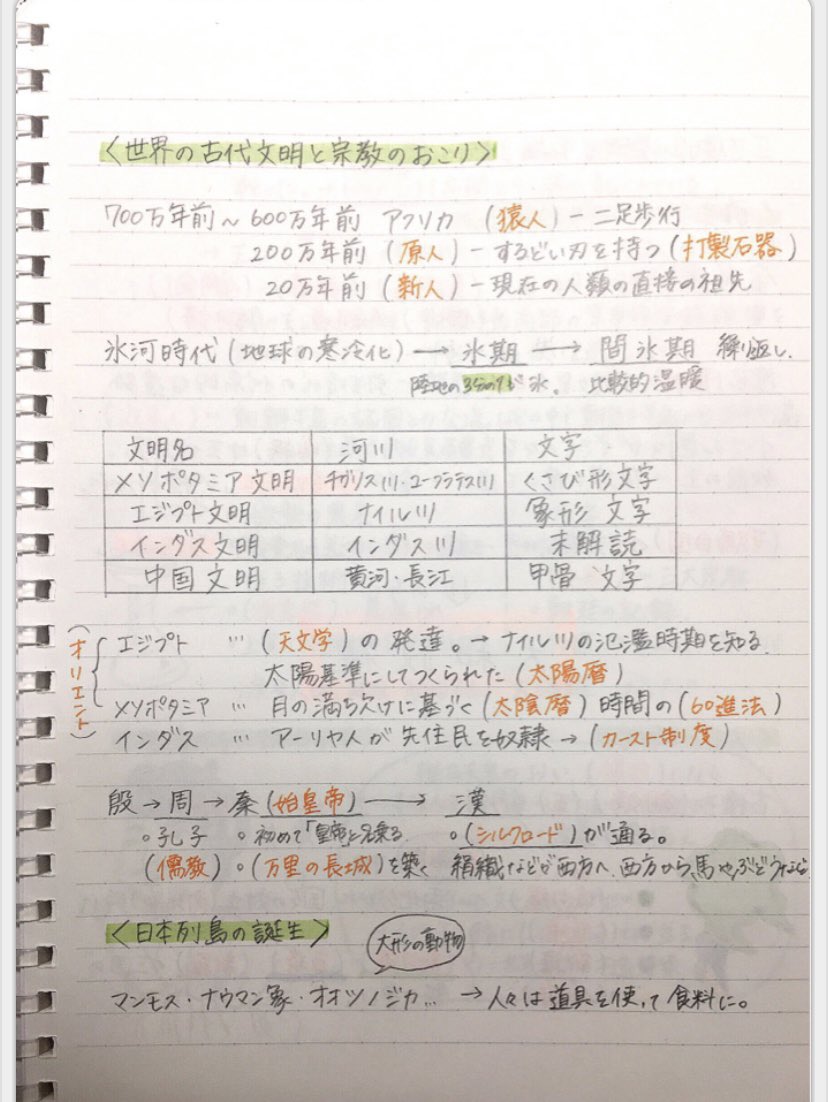 〈世界の古代文明と宗教のおこり〉
700万年前〜600万年前 アフリカ (猿人)−二足歩行
200万年前 (原人)−するどい刃を持つ(打製石器)
20万年前 (新人)−現在の人類の直接の祖先
氷河時代(地球の寒冷化)→氷期→間氷期 繰り返し.
陸地の3分の1が氷。 比較的温暖
文明名 河川 文字
メソポタミア文明 チグリス川・ユーフラテス川 くさび形文字
エジプト文明 ナイル川 象形文字
インダス文明 インダス川 未解読
中国文明 黄河・長江 甲骨文字
(オリエント)
エジプト … (天文学)の発達。→ナイル川の氾濫時期を知る.
太陽基準にしてつくられた(太陽暦)
メソポタミア … 月の満ち欠けに基づく(太陰暦)時間の(60進法)
インダス … アーリヤ人が先住民を奴隷→(カースト制度)
殷→周→秦(始皇帝)→漢
。孔子 。初めて「皇帝」と名乗る. 。(シルクロード)が通る。
(儒教) 。(万里の長城)を築く 絹織などが西方へ.西方から、馬やぶどうなど
〈日本列島の誕生〉
大形の動物
マンモス・ナウマン象・オオツノジカ… →人々は道具を使って食料に。